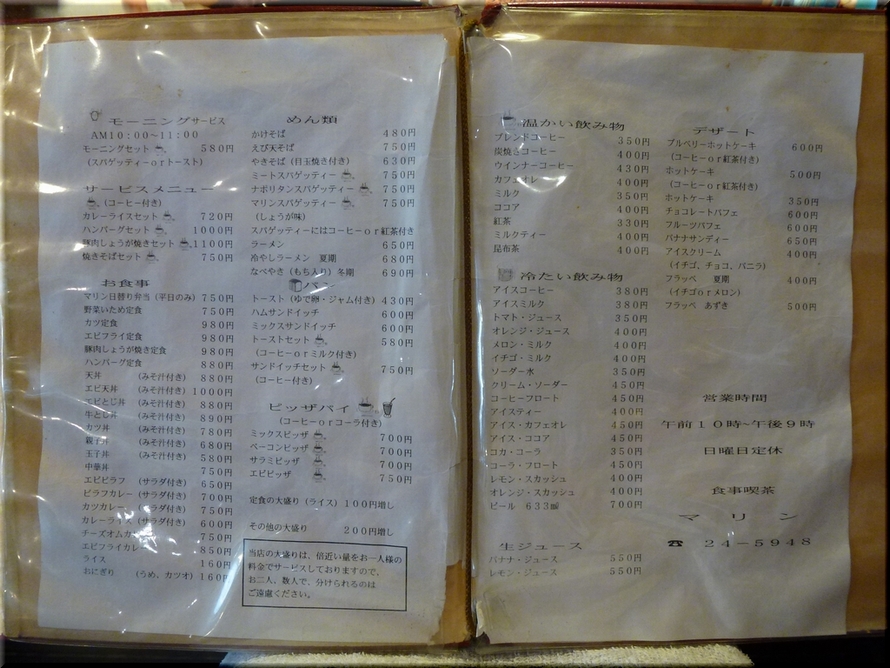 モーニングサービス
AM10:00～11:00
モーニングセット 580円
(スパゲッティーorトースト)
サービスメニュー
(コーヒー付き)
カレーライスセット 720円
ハンバーグセット 1000円
豚肉しょうが焼きセット 1100円
焼きそばセット 750円
お食事
マリン日替り弁当(平日のみ) 750円
野菜いため定食 750円
カツ定食 980円
エビフライ定食 980円
豚肉しょうが焼き定食 980円
ハンバーグ定食 880円
天丼 (みそ汁付き) 880円
エビ天丼 (みそ汁付き) 1000円
エビとじ丼 (みそ汁付き) 880円
牛とじ丼 (みそ汁付き) 890円
カツ丼 (みそ汁付き) 780円
親子丼 (みそ汁付き) 680円
玉子丼 (みそ汁付き) 580円
中華丼 750円
エビピラフ (サラダ付き) 650円
ピラフカレー (サラダ付き) 700円
カツカレー (サラダ付き) 750円
カレーライス (サラダ付き) 600円
チーズオムカ 750円
エビフライカレー 850円
ライス 160円
おにぎり (うめ,カツオ) 160円
めん類
かけそば 480円
えび天そば 750円
やきそば(目玉焼き付き) 630円
ミートスパゲッティー 750円
ナポリタンスパゲッティー 750円
マリンスパゲッティー 750円
(しょうが味)
スパゲッティーにはコーヒーor紅茶付き
ラーメン 650円
冷やしラーメン 夏期 680円
なべやき(もち入り)冬期 690円
パン
トースト(ゆで卵・ジャム付き) 430円
ハムサンドイッチ 600円
ミックスサンドイッチ 600円
トーストセット 580円
(コーヒーorミルク付き)
サンドイッチセット 750円
(コーヒー付き)
ピッザパイ
(コーヒーorコーラ付き)
ミックスピッザ 700円
ベーコンピッザ 700円
サラミピッザ 700円
エビピッザ 750円
定食の大盛り(ライス) 100円増し
その他の大盛り 200円増し
当店の大盛りは、倍近い量をお一人様の
料金でサービスしておりますので、
お二人、数人で、分けられるのは
ご遠慮ください。
温かい飲み物
ブレンドコーヒー 350円
炭焼きコーヒー 400円
ウインナーコーヒー 430円
カフェオレ 400円
ミルク 350円
ココア 400円
紅茶 330円
ミルクティー 400円
昆布茶 400円
冷たい飲み物
アイスコーヒー 380円
アイスミルク 380円
トマト・ジュース 350円
オレンジ・ジュース 350円
メロン・ミルク 400円
イチゴ・ミルク 400円
ソーダー水 350円
クリーム・ソーダー 450円
コーヒーフロート 450円
アイスティー 400円
アイス・カフェオレ 450円
アイス・ココア 450円
コカ・コーラ 350円
コーラ・フロート 450円
レモン・スカッシュ 400円
オレンジ・スカッシュ 400円
ビール 633㎖ 700円
生ジュース
バナナ・ジュース 550円
レモン・ジュース 550円
デザート
ブルベリーホットケーキ 600円
(コーヒーor紅茶付き)
ホットケーキ 500円
(コーヒーor紅茶付き)
ホットケーキ 350円
チョコレートパフェ 600円
フルーツパフェ 600円
バナナサンディー 650円
アイスクリーム 400円
(イチゴ、チョコ、バニラ)
フラッペ 夏期 400円
(イチゴorメロン)
フラッペ あずき 500円
営業時間
午前10時~午後9時
日曜日定休
食事喫茶
マリン
☎ 24-5948